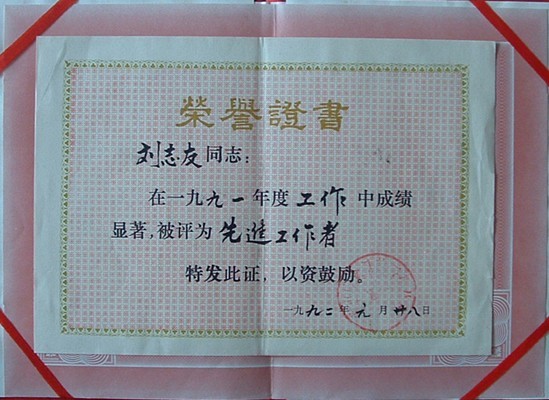 榮譽證書
刘志友同志：
在一九九一年度工作中成绩
显著，被评为先進工作者
特发此证，以资鼓励。
一九九二年元月廿八日